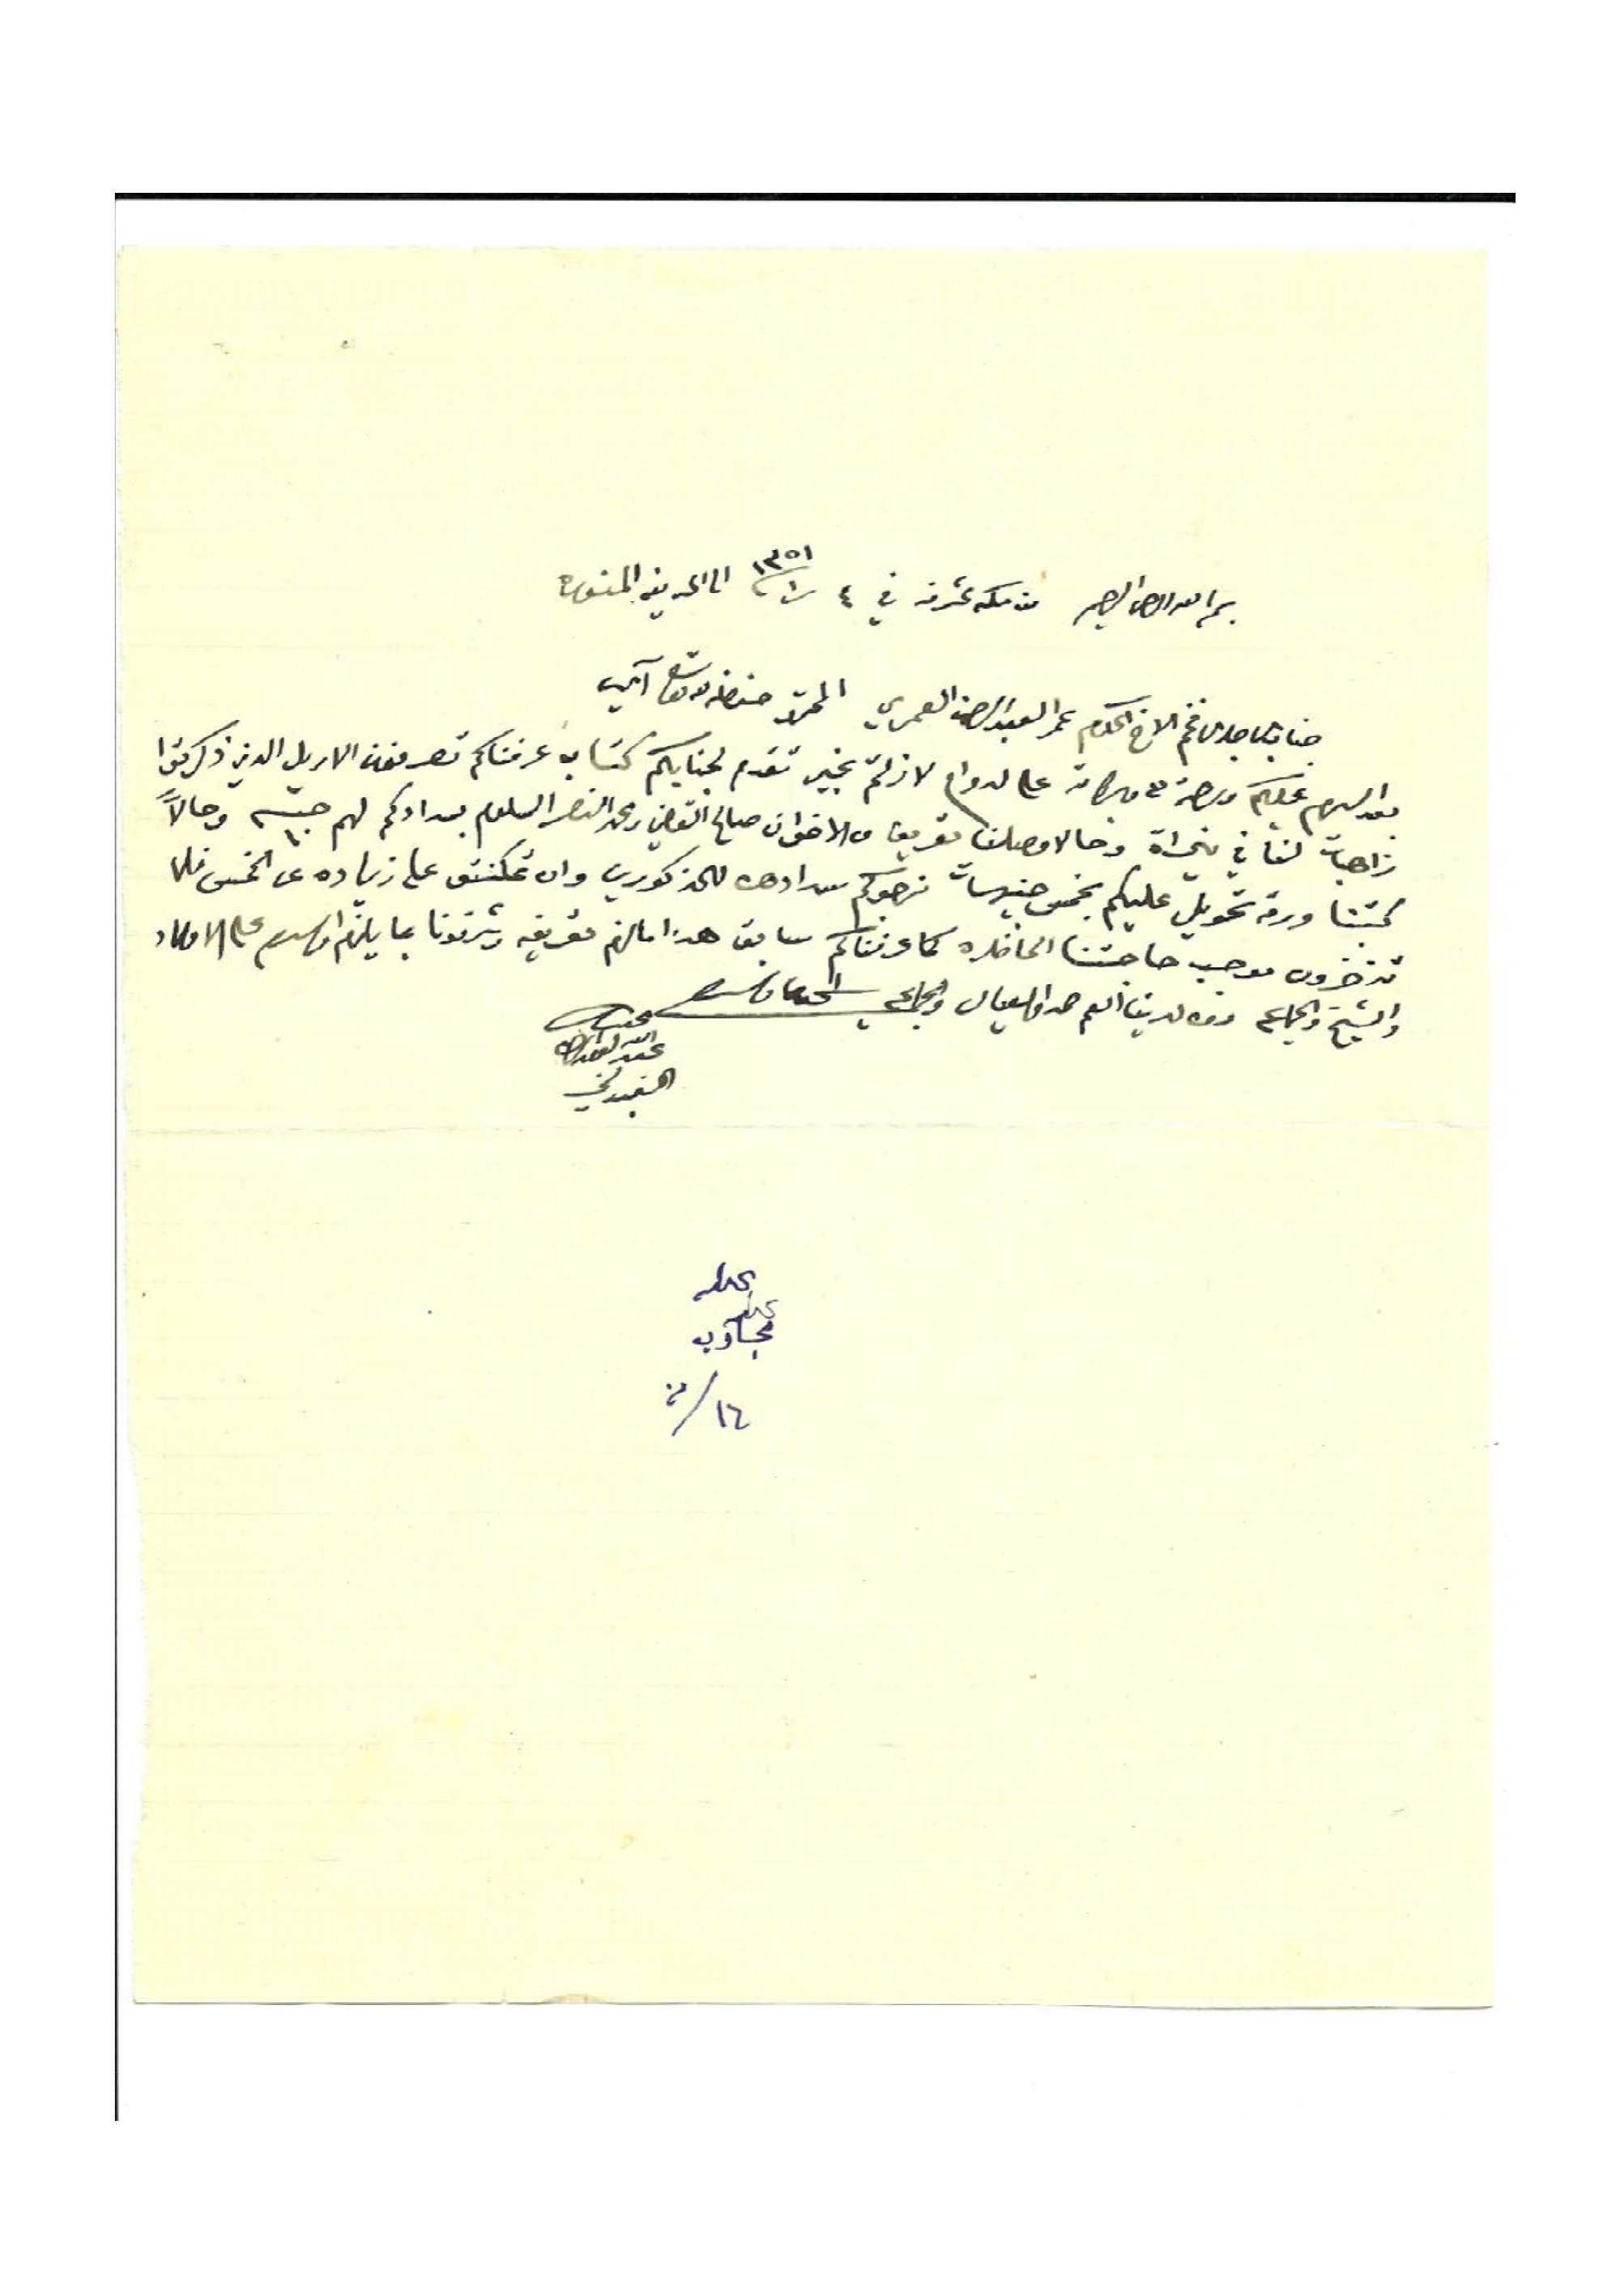 بسم الله الرحمن الرحيم من مكه المشرفه في ٤ را ١٣٥١ الى المدينه المنوره
جناب الاجل الافخم الاخ المكرم عمر العبدالرحمن العمري المحترم حفظه الله تعالى آمين
بعد السلام عليكم ورحمة الله وبركاته على الدوام لازلتم بخير تقدم لجنابكم كتاب عرفناكم تصرفون الاريل الذي ذكرتوا
لنا في وحالا وصلنا تعريف من الاخوان صالح القاضي ومحمد النصر السلوم بسدادكم لهم جنيه وحالاً
كتبنا ورقة تحويل عليكم بخمس جنيهات نرجوكم سدادها للمذكورين وان تمكنتوا على زياده عن الخمس فلا
تذخرون موجب حاجتنا الحاضره كما عرفناكم سابق هذا مالزم تعريفه وشرفونا بما يلزم والسلام على الاولاد
والشيخ والجماعه ومن لدينا العم حمد والعيال والجماعه والسلام
محبكم
عبدالله
مجاوب
١٦/